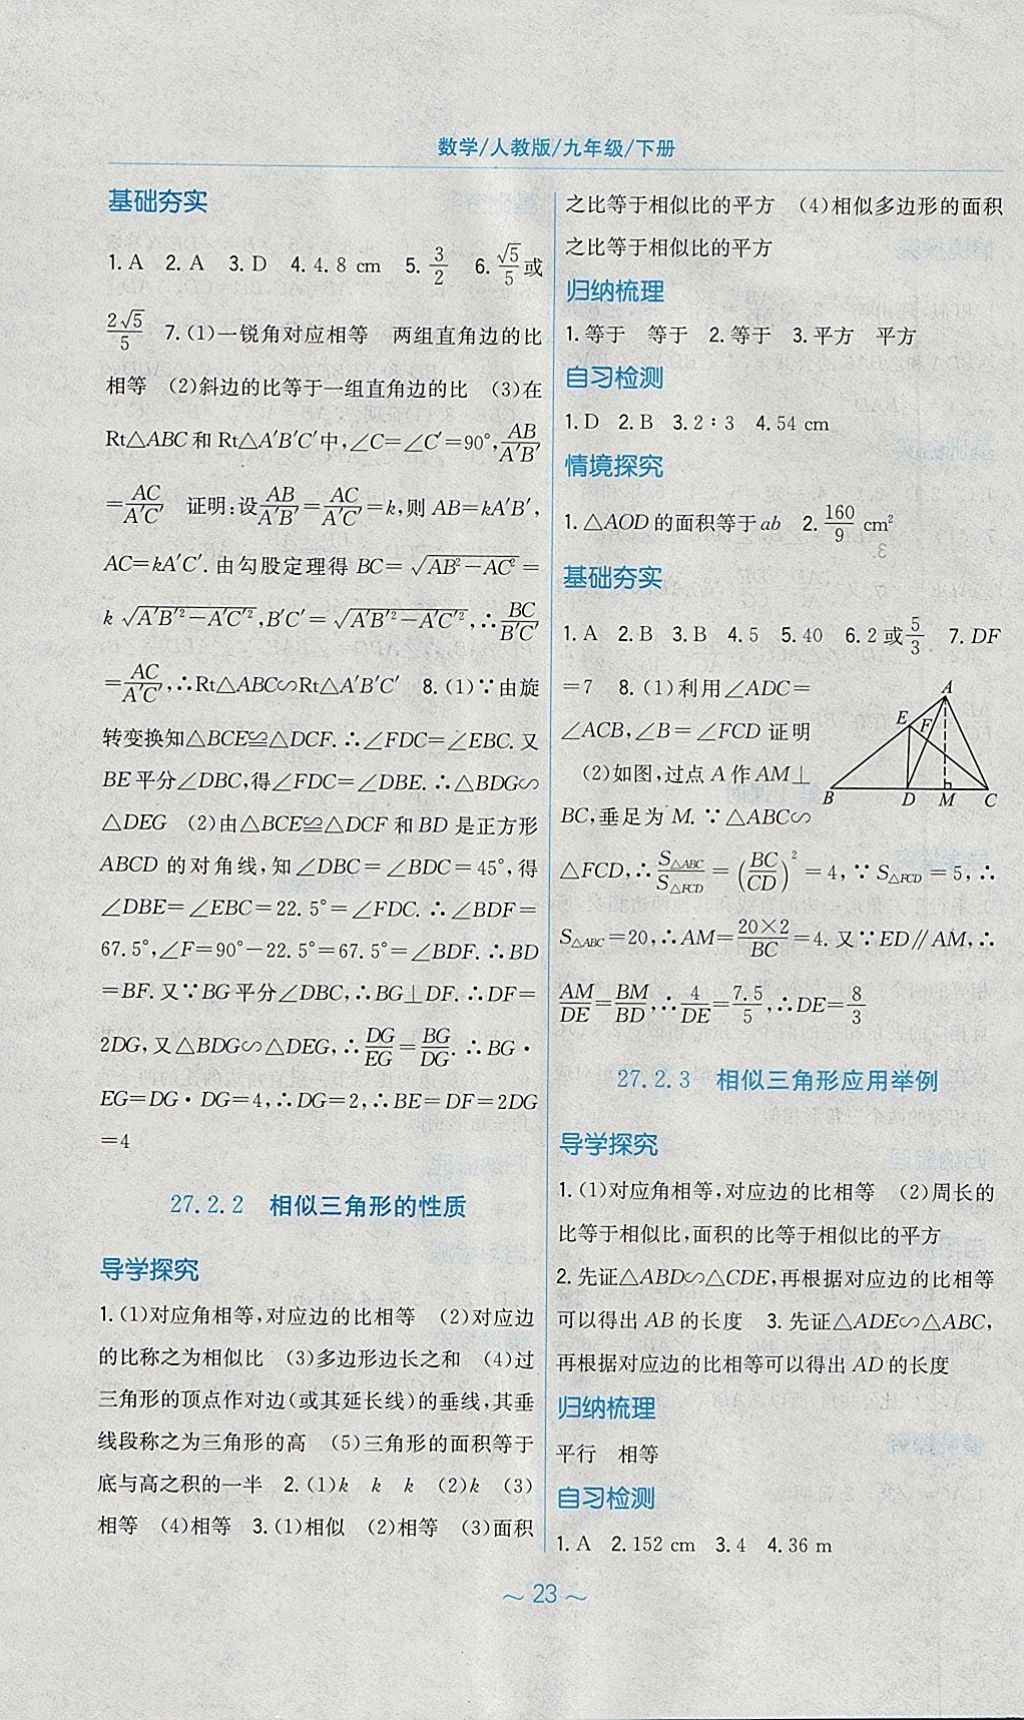 数学/人教版/九年级/下册
基础夯实
1. A 2. A 3. D 4. 4.8 cm 5. 3/2 6. √5/5或
2√5/5 7. (1)一锐角对应相等 两组直角边的比
相等 (2)斜边的比等于一组直角边的比 (3)在
Rt△ABC和Rt△A′B′C′中,∠C=∠C′=90°,AB/A′B′
=AC/A′C′ 证明:设AB/A′B′=AC/A′C′=k,则AB=kA′B′,
AC=kA′C′.由勾股定理得BC=√(AB²-AC²)=
k√(A′B′²-A′C′²),B′C′=√(A′B′²-A′C′²),∴BC/B′C′
=AC/A′C′,∴Rt△ABC∽Rt△A′B′C′ 8. (1)∵由旋
转变换知△BCE≌△DCF.∴∠FDC=∠EBC.又
BE平分∠DBC,得∠FDC=∠DBE.∴△BDG∽
△DEG (2)由△BCE≌△DCF和BD是正方形
ABCD的对角线,知∠DBC=∠BDC=45°,得
∠DBE=∠EBC=22.5°=∠FDC.∴∠BDF=
67.5°,∠F=90°-22.5°=67.5°=∠BDF.∴BD
=BF.又∵BG平分∠DBC,∴BG⊥DF.∴DF=
2DG,又△BDG∽△DEG,∴DG/EG=BG/DG.∴BG·
EG=DG·DG=4,∴DG=2,∴BE=DF=2DG
=4
27.2.2 相似三角形的性质
导学探究
1. (1)对应角相等,对应边的比相等 (2)对应边
的比称之为相似比 (3)多边形边长之和 (4)过
三角形的顶点作对边(或其延长线)的垂线,其垂
线段称之为三角形的高 (5)三角形的面积等于
底与高之积的一半 2. (1)k k k (2)k (3)
相等 (4)相等 3. (1)相似 (2)相等 (3)面积
之比等于相似比的平方 (4)相似多边形的面积
之比等于相似比的平方
归纳梳理
1. 等于 等于 2. 等于 3. 平方 平方
自习检测
1. D 2. B 3. 2∶3 4. 54 cm
情境探究
1. △AOD的面积等于ab 2. 160/9 cm²
基础夯实
1. A 2. B 3. B 4. 5 5. 40 6. 2或5/3 7. DF
=7 8. (1)利用∠ADC=
∠ACB,∠B=∠FCD证明
(2)如图,过点A作AM⊥
BC,垂足为M.∵△ABC∽
A
E F
B D M C
△FCD,∴S△ABC/S△FCD=(BC/CD)²=4,∵S△FCD=5,∴
S△ABC=20,∴AM=20×2/BC=4.又∵ED∥AM,∴
AM/DE=BM/BD,∴4/DE=7.5/5,∴DE=8/3
27.2.3 相似三角形应用举例
导学探究
1. (1)对应角相等,对应边的比相等 (2)周长的
比等于相似比,面积的比等于相似比的平方
2. 先证△ABD∽△CDE,再根据对应边的比相等
可以得出AB的长度 3. 先证△ADE∽△ABC,
再根据对应边的比相等可以得出AD的长度
归纳梳理
平行 相等
自习检测
1. A 2. 152 cm 3. 4 4. 36 m
～ 23 ～